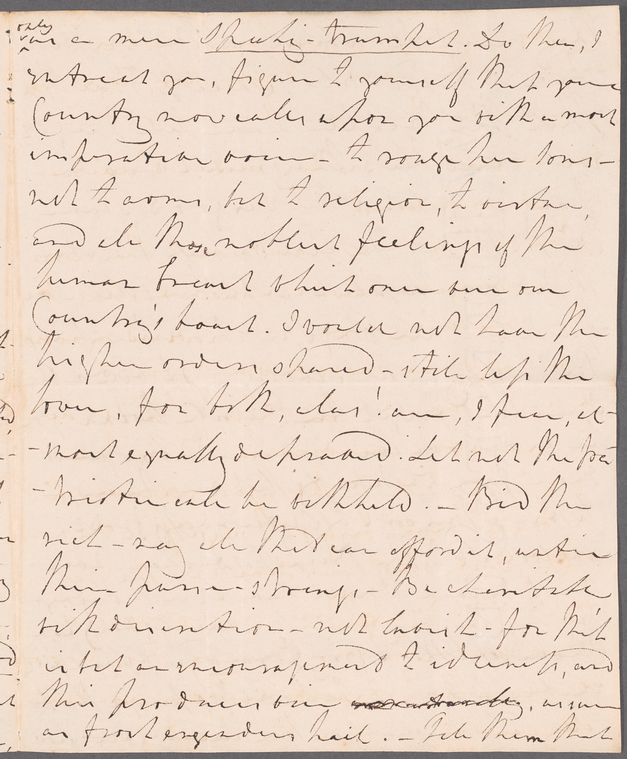 only
as a mere Speaking-trumpet. Do then, I
entreat you, figure to yourself that your
Country now calls upon you with a most
imperative voice - to rouge her sons -
not to arms, but to religion, to virtue,
and all those noblest feelings of the
human breast which once were our
Country's boast. I would not have the
higher orders shared - still less the
lower, for both, alas! are, I fear, al-
-most equally depraved. Let not the pa-
-triotic call be withheld. - Bid the
rich - nay all that can afford it, untie
their purse-strings - Be charitable
with discretion - not lavish - for that
is but an encouragement to idleness, and
this produces vice, as sure
as frost engenders hail. - Tell them that